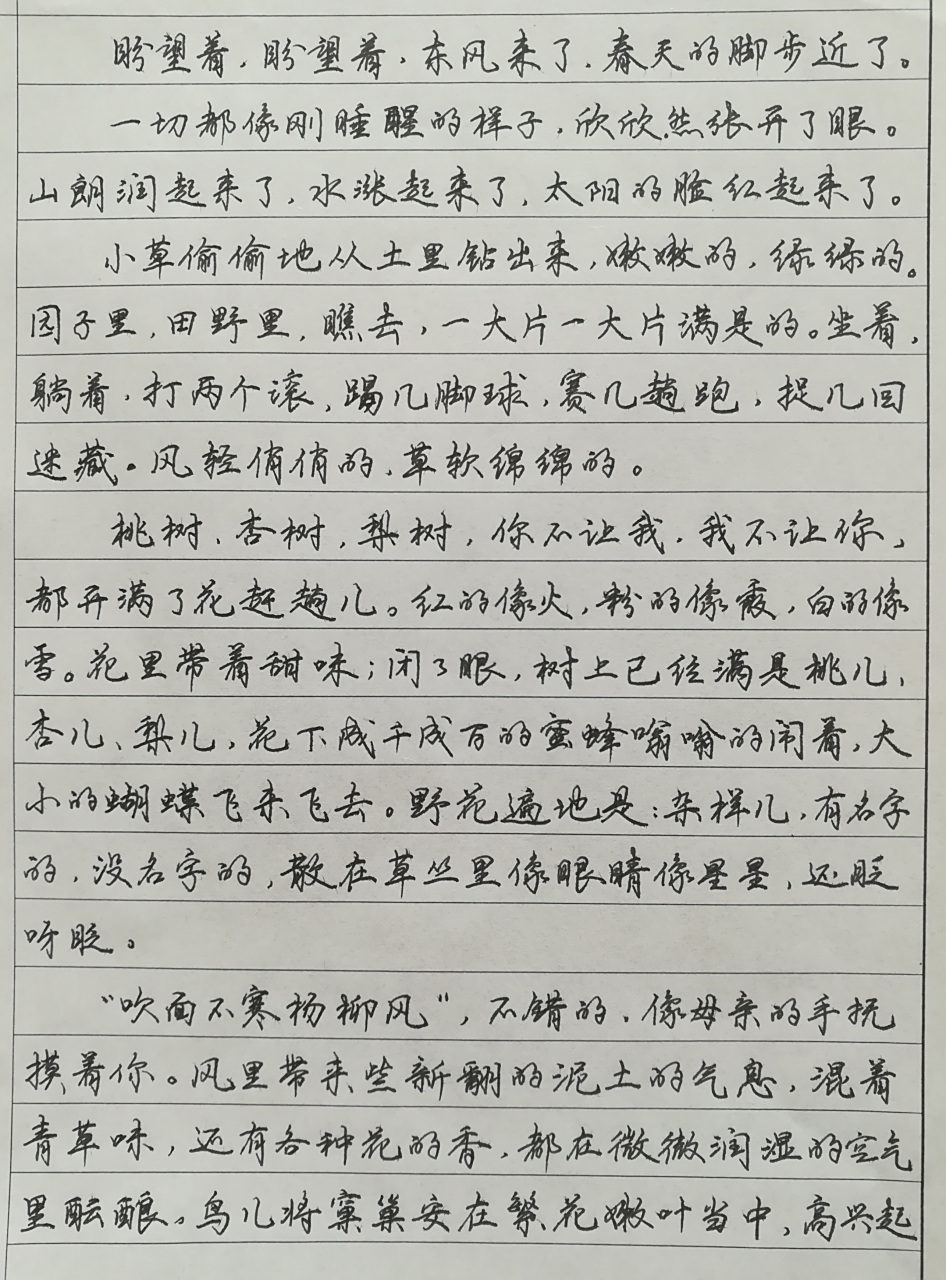 盼望着，盼望着，东风来了，春天的脚步近了。
一切都像刚睡醒的样子，欣欣然张开了眼。
山朗润起来了，水涨起来了，太阳的脸红起来了。
小草偷偷地从土里钻出来，嫩嫩的，绿绿的。
园子里，田野里，瞧去，一大片一大片满是的。坐着，
躺着，打两个滚，踢几脚球，赛几趟跑，捉几回
迷藏。风轻俏俏的，草软绵绵的。
桃树、杏树，梨树，你不让我，我不让你，
都开满了花赶趟儿。红的像火，粉的像霞，白的像
雪。花里带着甜味；闭了眼，树上已经满是桃儿、
杏儿、梨儿，花下成千成百的蜜蜂嗡嗡的闹着，大
小的蝴蝶飞来飞去。野花遍地是：杂样儿，有名字
的，没名字的，散在草丛里像眼睛像星星，还眨
呀眨。
“吹面不寒杨柳风”，不错的，像母亲的手抚
摸着你。风里带来些新翻的泥土的气息，混着
青草味，还有各种花的香，都在微微润湿的空气
里酝酿。鸟儿将窠巢安在繁花嫩叶当中，高兴起